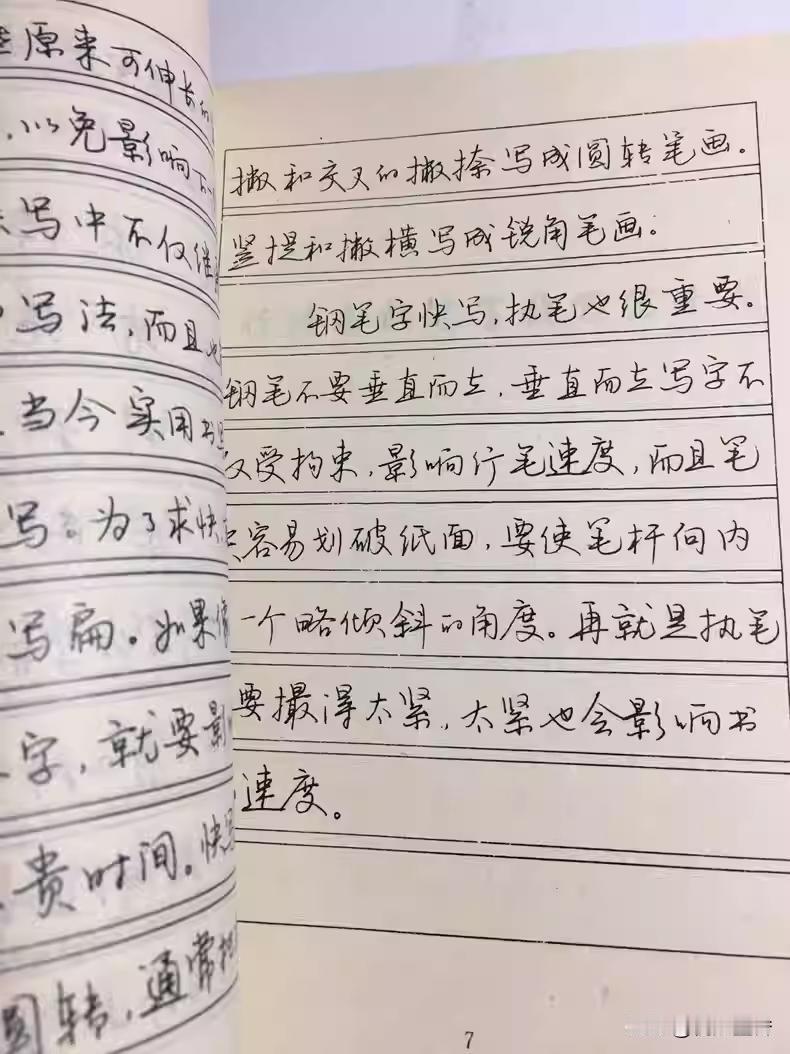 原来可伸长的
，以免影响下
写中不仅
写法，而且也
当今实用书
写。为了求快
写扁。如果
字，就要影
贵时间。快写
圆转，通常把
撇和交叉的撇捺写成圆转笔画。
竖提和撇横写成锐角笔画。
钢笔字快写，执笔也很重要。
钢笔不要垂直而立，垂直而立写字不
仅受拘束，影响行笔速度，而且笔
容易划破纸面，要使笔杆向内
一个略倾斜的角度。再就是执笔
要撮得太紧，太紧也会影响书
速度。
7